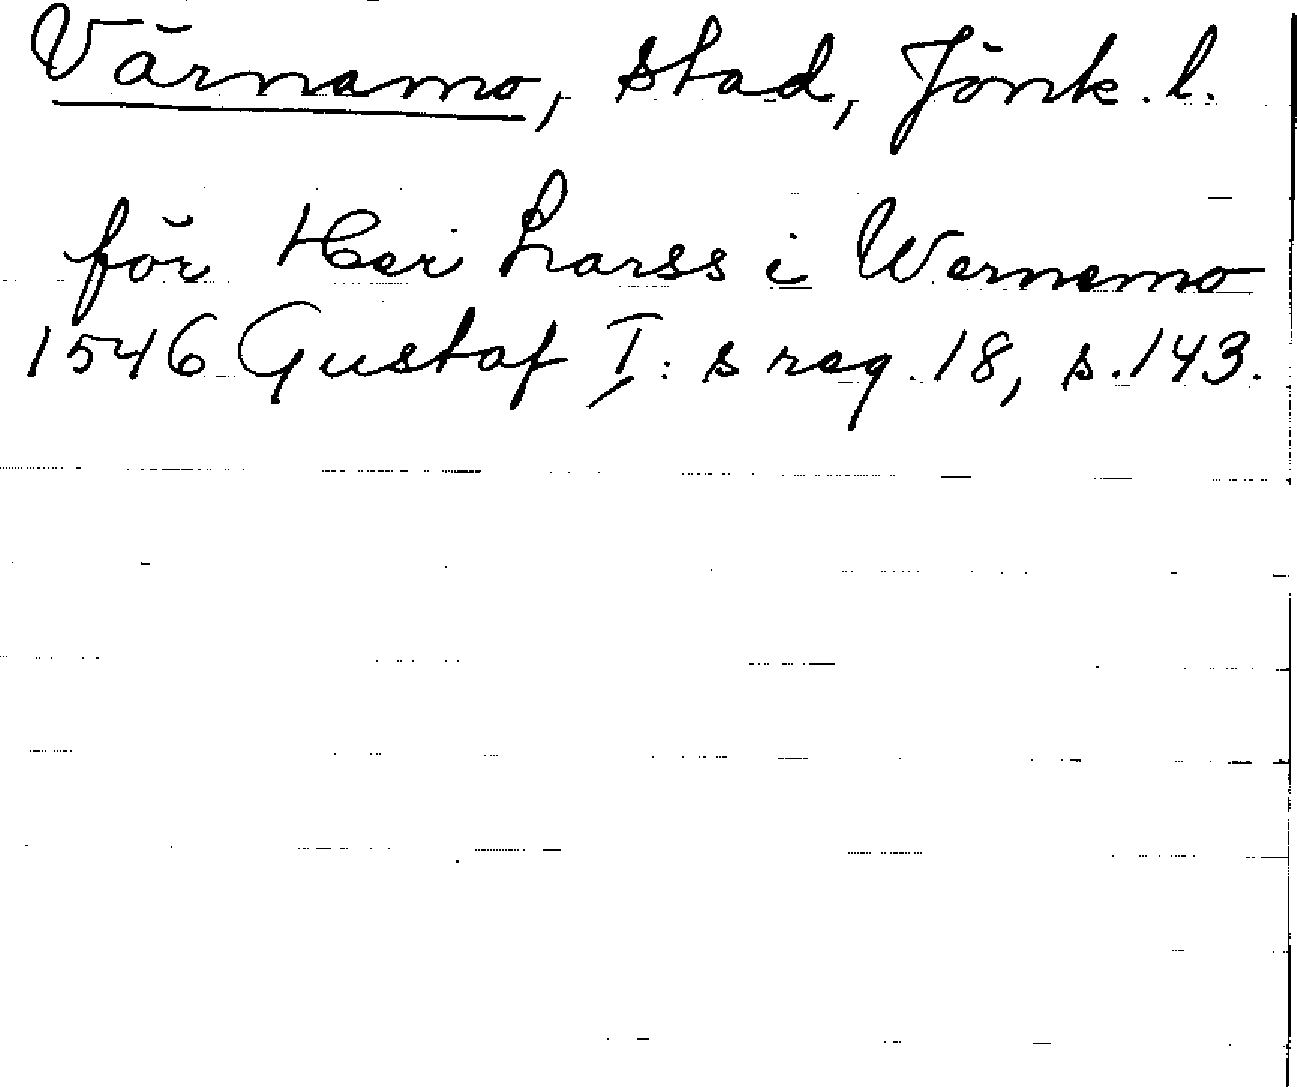 Värnamo, stad, Jönk. l.
för Her Larss i Wernemo
1546 Gustaf I:s reg. 18, s. 143.